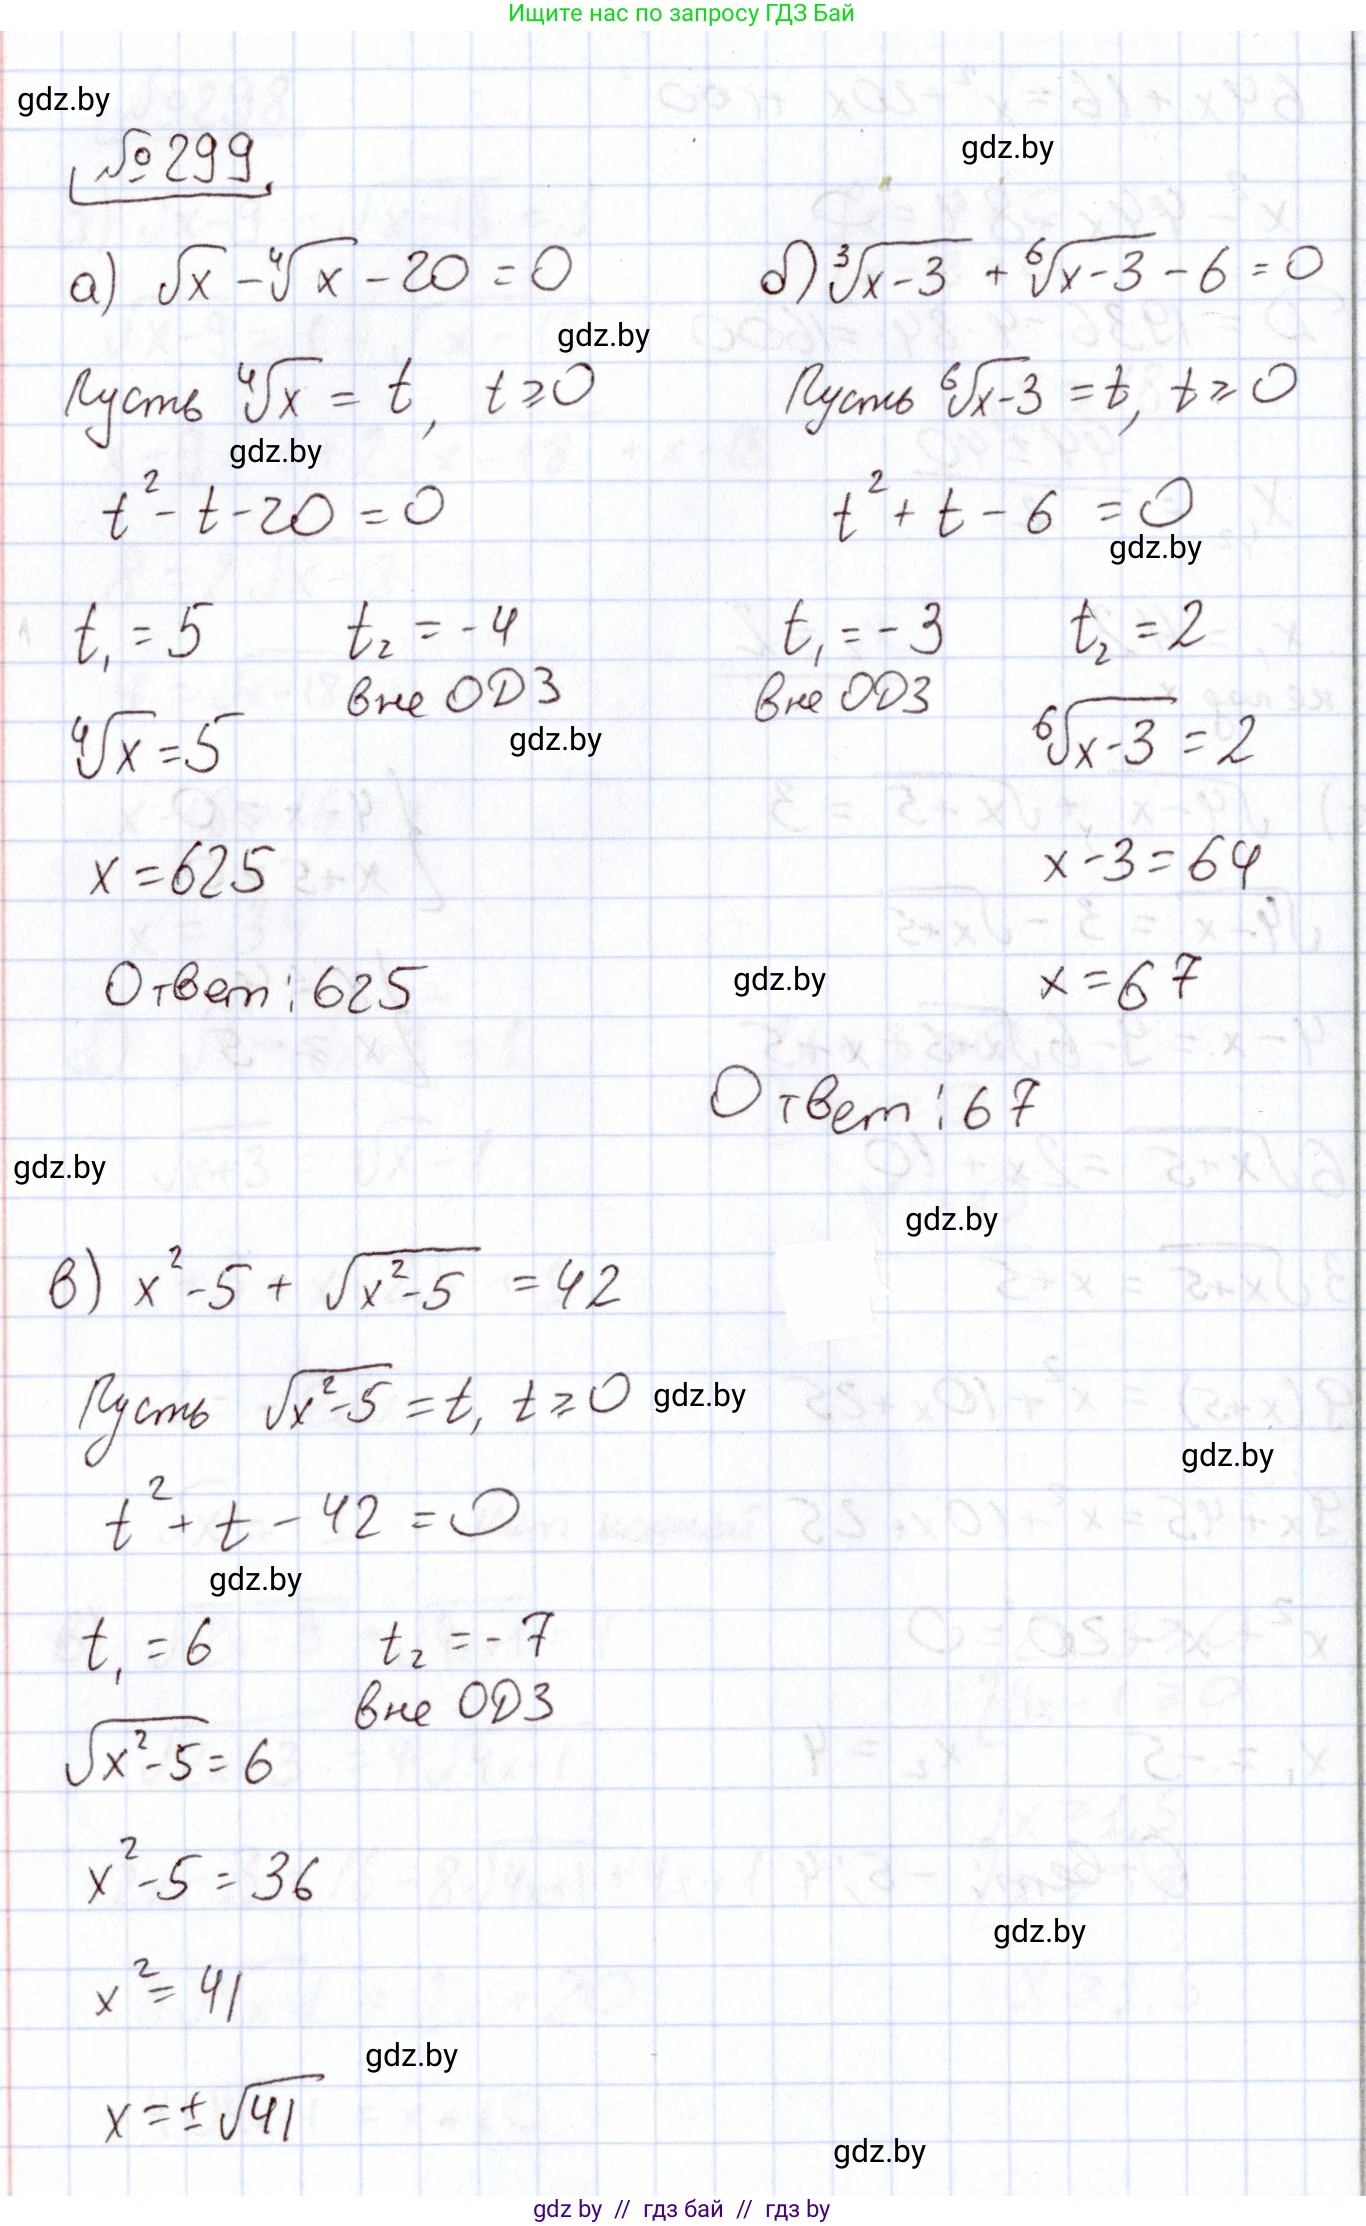 Ищите нас по запросу ГДЗ Бай
gdz.by
№299
gdz.by
а) √x - ⁴√x - 20 = 0
gdz.by
Пусть ⁴√x = t, t ≥ 0
gdz.by
t² - t - 20 = 0
t₁ = 5 t₂ = -4
вне ОДЗ
gdz.by
⁴√x = 5
x = 625
Ответ: 625
б) ³√(x-3) + ⁶√(x-3) - 6 = 0
Пусть ⁶√(x-3) = t, t ≥ 0
t² + t - 6 = 0
gdz.by
t₁ = -3 t₂ = 2
вне ОДЗ
⁶√(x-3) = 2
x - 3 = 64
gdz.by
x = 67
Ответ: 67
gdz.by
gdz.by
в) x² - 5 + √(x² - 5) = 42
Пусть √(x² - 5) = t, t ≥ 0
gdz.by
gdz.by
t² + t - 42 = 0
gdz.by
t₁ = 6 t₂ = -7
вне ОДЗ
√(x² - 5) = 6
x² - 5 = 36
gdz.by
x² = 41
gdz.by
x = ±√41
gdz.by
gdz by // гдз бай // гдз by